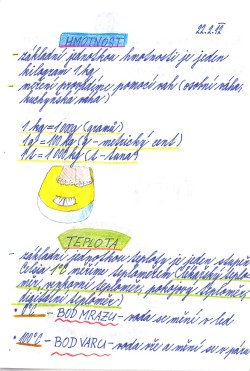 22.2.12
HMOTNOST
- základní jednotkou hmotnosti je jeden
kilogram 1kg
- měření provádíme pomocí vah (osobní váha,
kuchyňská váha)
1 kg = 1000g (gramů)
1q = 100 kg (q - metrický cent)
1t = 1000 kg (t - tuna)
TEPLOTA
- základní jednotkou teploty je jeden stupeň
Celsia 1°C měříme teploměrem (lékařský teplo-
měr, venkovní teploměr, pokojový teploměr,
digitální teploměr)
- 0°C - BOD MRAZU - voda se mění v led
- 100°C - BOD VARU - voda vře a mění se v páru